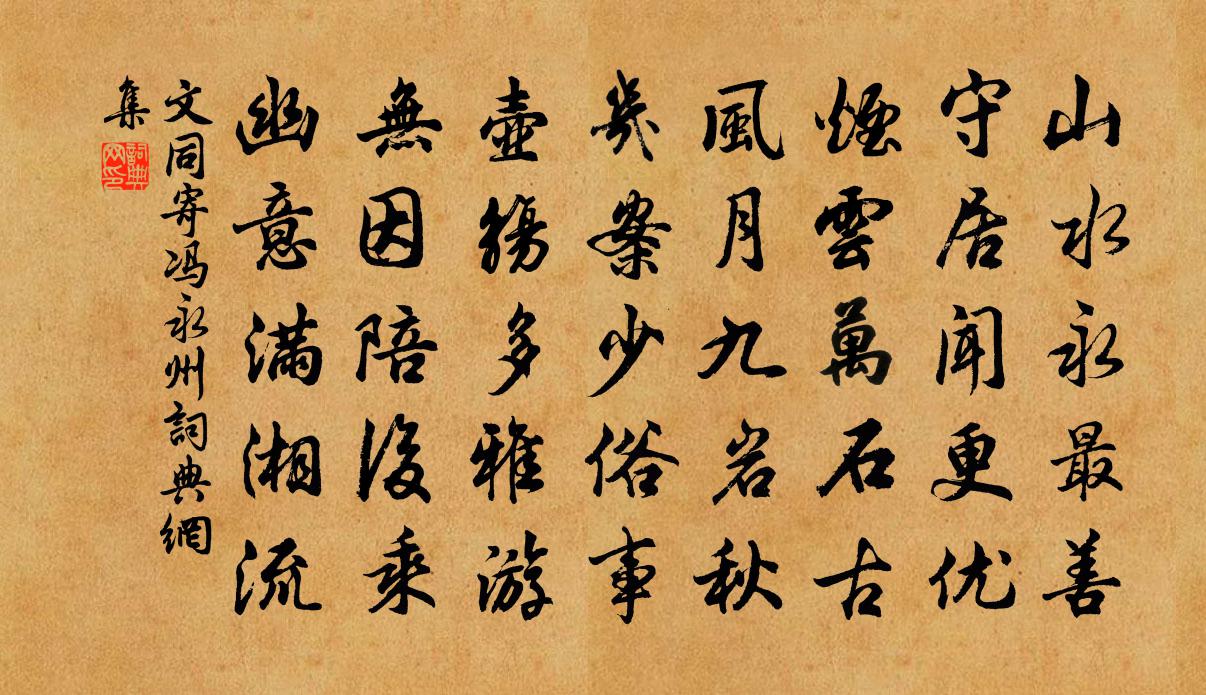 山水永最善
守居闻更优
煙雲萬石古
風月九岩秋
幾案少俗事
壺觴多雅游
無因陪後乘
幽意满湘流
文同寄冯永州詞典網
集
詞典網印